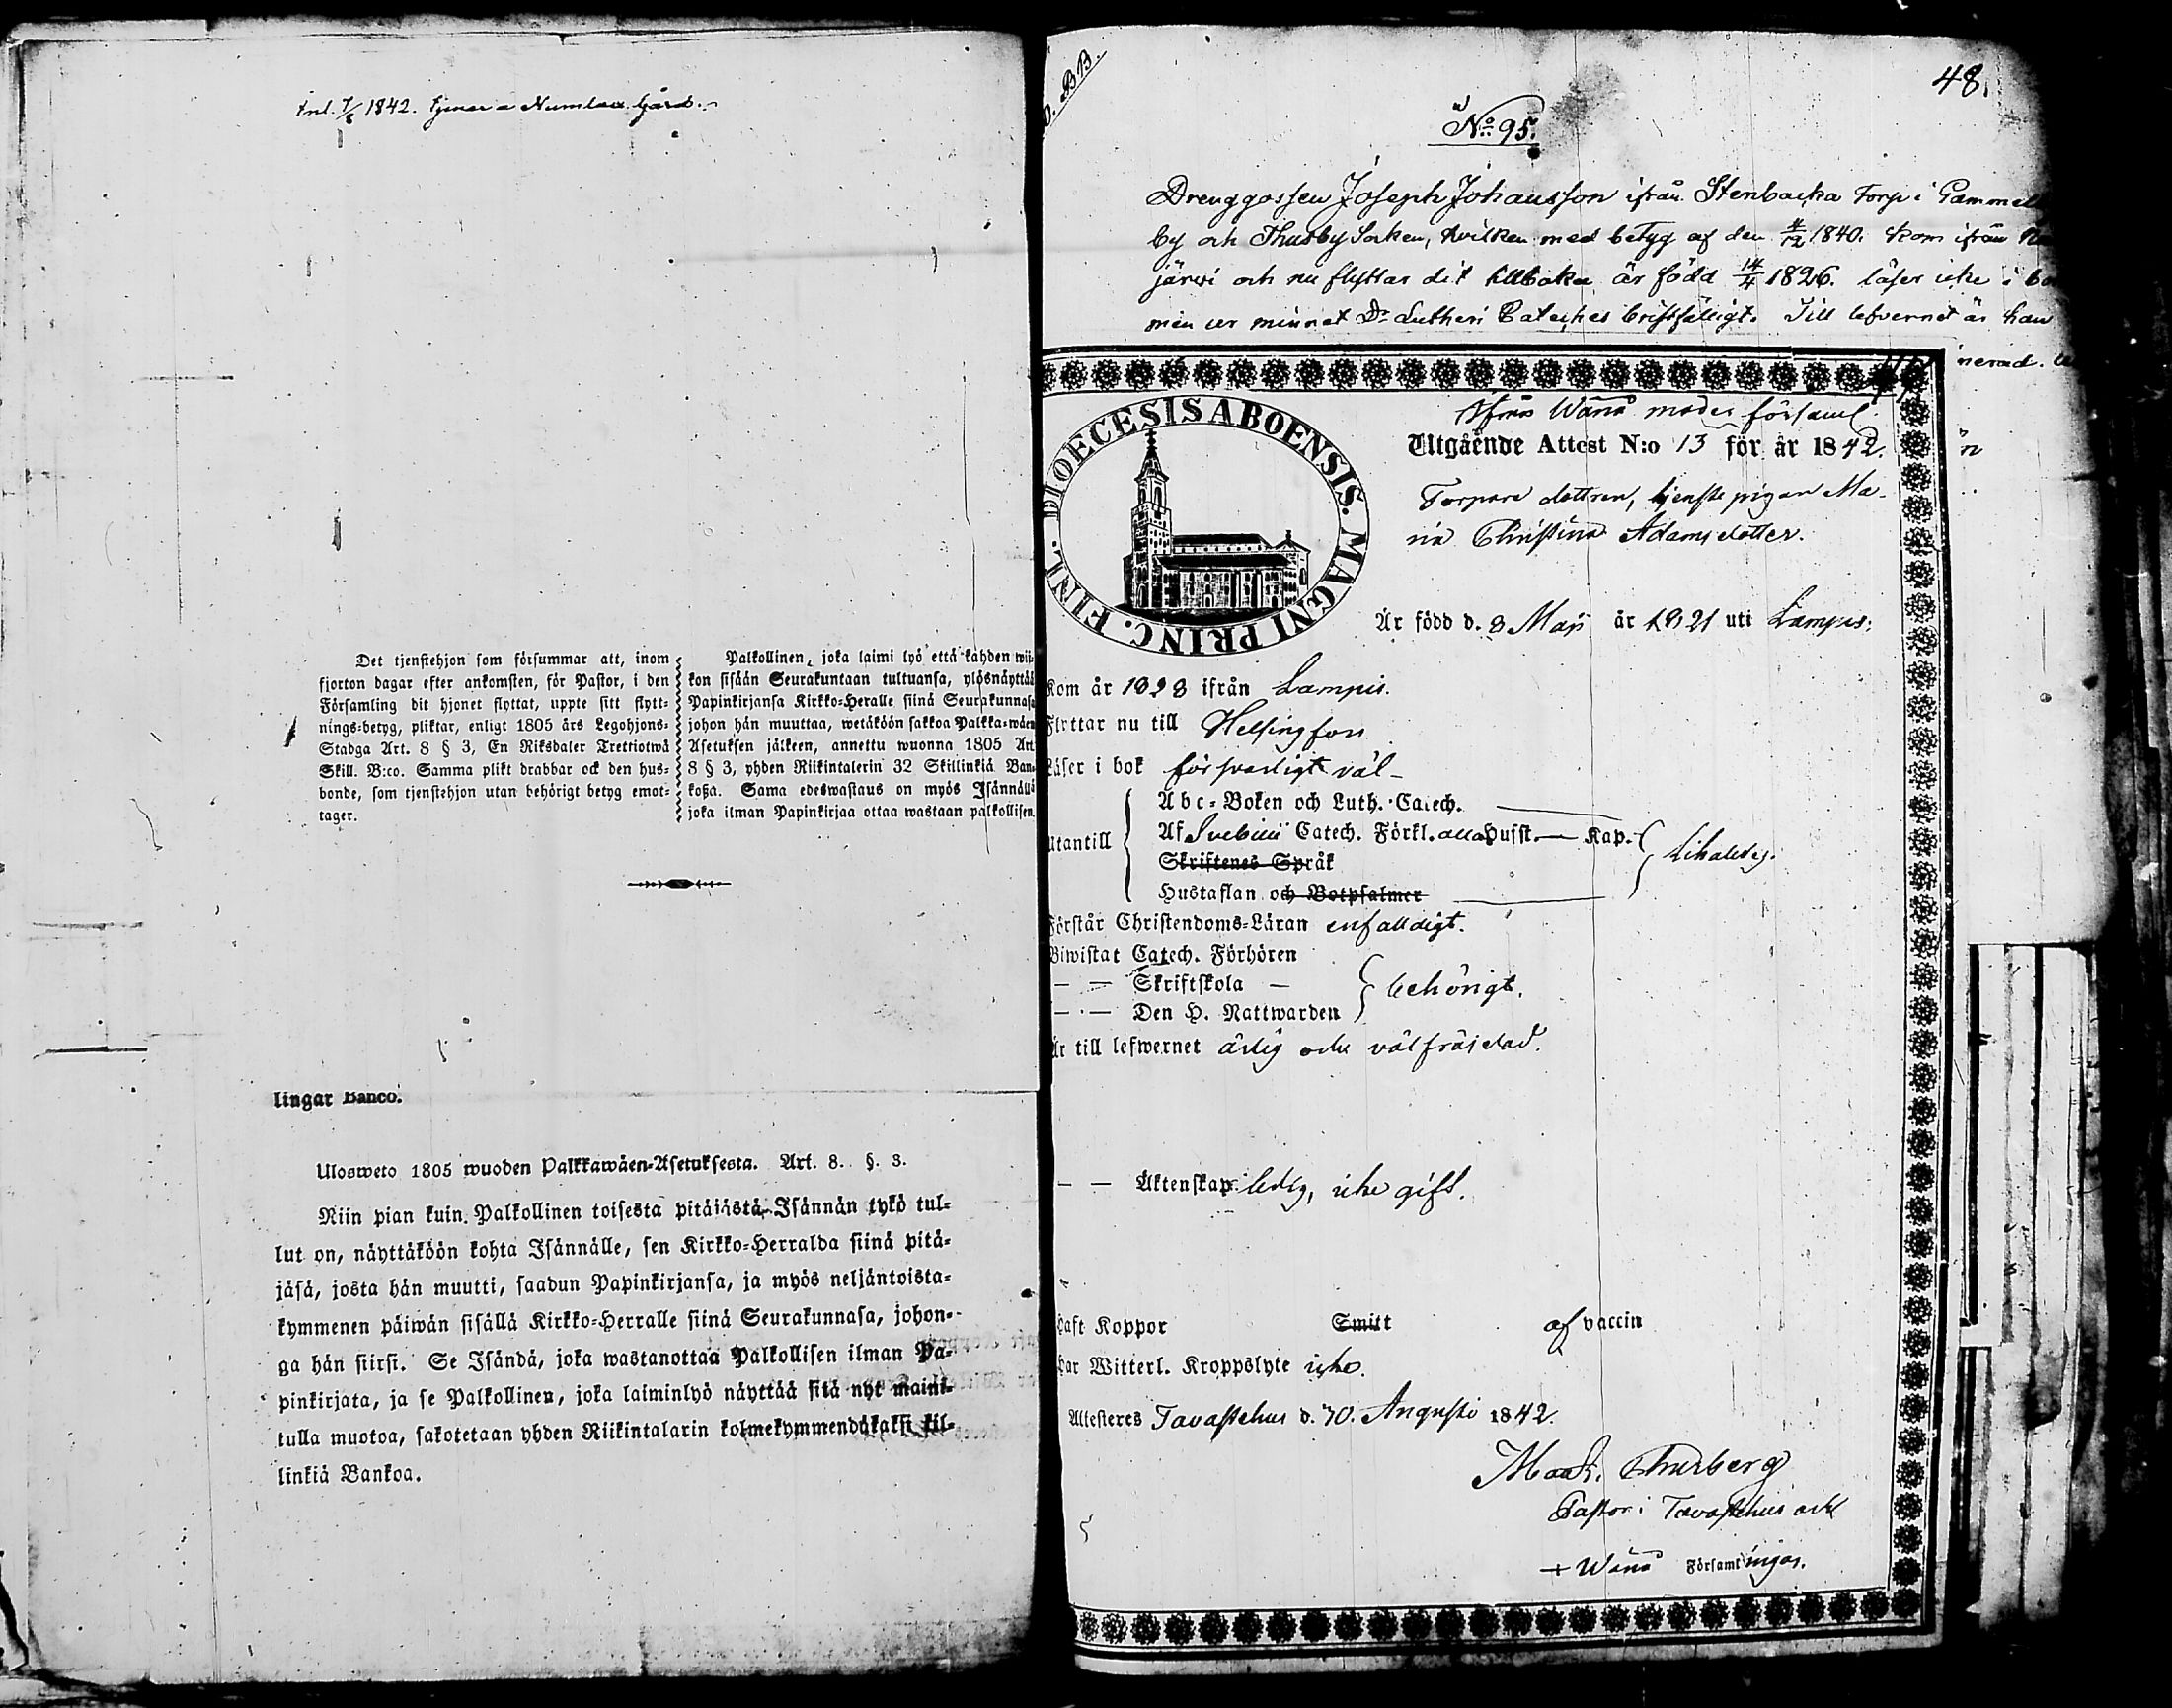 Inl. 7/6 1842. tjenar a Numlax Gård.
Det tjenstehjon som försummar att, inom
fjorton dagar efter ankomsten, för Pastor, i den
Församling dit hjonet flyttat, uppte sitt flytt-
nings-betyg, pliktar, enligt 1805 års Legohjons-
Stadga Art. 8 § 3, En Riksdaler Trettiotwå
Skill. B:co. Samma plikt drabbar ock den hus-
bonde, som tjenstehjon utan behörigt betyg emot-
tager.
Palkollinen, joka laimi lyö että kahden wii-
kon sisään Seurakuntaan tultuansa, ylösnäyttää
Papinkirjansa Kirkko-Heralle siinä Seurakunnasa
johon hän muuttaa, wetäköön sakkoa Palkka-wäen
Asetuksen jälkeen, annettu wuonna 1805 Art
8 § 3, yhden Riikintalerin 32 Skillinkiä Ban-
koßa. Sama edeswastaus on myös Isännällä
joka ilman Papinkirjaa ottaa wastaan palkollisen.
lingar Banco.
Ulosweto 1805 wuoden Palkkawäen-Asetuksesta. Art. 8. §. 3.
Niin pian kuin Palkollinen toisesta pitäjästä Isännän tykö tul-
lut on, näyttäköön kohta Isännälle, sen Kirkko-Herralda siinä pitä-
jäsä, josta hän muutti, saadun Papinkirjansa, ja myös neljäntoista-
kymmenen päiwän sisällä Kirkko-Herralle siinä Seurakunnasa, johon-
ga hän siirsi. Se Isändä, joka wastanottaa Palkollisen ilman Pa-
pinkirjata, ja se Palkollinen, joka laiminlyö näyttää sitä nyt maini-
tulla muotoa, sakotetaan yhden Riikintalarin kolmekymmendäkaksi kil-
linkiä Bankoa.
BB.
48.
No 95.
Drenggossen Joseph Johansson ifrån Stenbacka Torp i Gammel
by och Thusby Socken, hvilken med betyg af den 4/12 1840. kom ifrån
järwi och nu flyttar dit tillbaka är född 14/4 1826. läser icke i bo
men ur minnet Dr Lutheri Cateches bristfälligt. Till lefvernet är han
nerad.
DIOECESIS ABOENSIS. MAGNI PRINC. FINL.
Ifrån Wånå moder församl.
Utgående Attest N:o 13 för år 1842.
Torpare dottren, tjenstepigan Ma-
ria Christina Adamsdotter.
Är född d. 8 Maji år 1821 uti Lampis.
Kom år 1838 ifrån Lampis.
Flyttar nu till Helsingfors
Läser i bok försvarligt väl
Abc-Boken och Luth. Catech.
Utantill
Af Svebilii Catech. Förkl. alla Hufst. — Kap.
likaledes.
Skriftenes Språk
Hustaflan och Botpsalmer
Förstår Christendoms-Läran enfalldigt.
Biwistat Catech. Förhören
— — Skriftskola —
behörigt.
— — Den H. Nattwarden
Är till lefwernet ärlig och välfräjdad.
— — Äktenskap: ledig, icke gift.
Haft Koppor Smitt af vaccin
Har Witterl. Kroppslyte icke.
Attesteres Tavastehus d. 10. Augusti 1842.
Thurberg
Pastor i Tavastehus och
Wånå Församlingar.